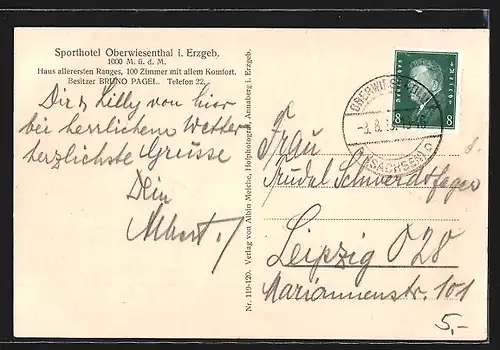 Sporthotel Oberwiesenthal i. Erzgeb.
1000 M. ü. d. M.
Haus allerersten Ranges, 100 Zimmer mit allem Komfort.
Besitzer BRUNO PAGEL. Telefon 22.
Dir & Lilly von hier
bei herrlichem Wetter
herzlichste Grüsse
Dein
Albert.
Nr. 119-120. Verlag von Albin Meiche, Hofphotograf, Annaberg i. Erzgeb.
Deutsches Reich
8 8
OBERWIESENTHAL
(SACHSEN)
Frau
Trudel Schwerdtfeger
Leipzig O 28
Mariannenstr. 101
5,-